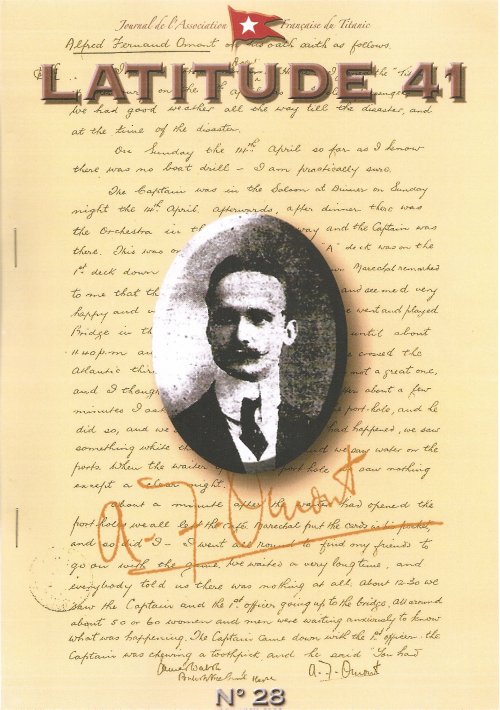 Journal de l'Association Française du Titanic
Alfred Fernand Omont on his oath saith as follows.
LATITUDE 41
we had good weather all the way till the disaster, and
at the time of the disaster.
On Sunday the 14th April so far as I know
there was no boat drill – I am practically sure.
The Captain was in the Saloon at Dinner on Sunday
night the 14th April. afterwards, after dinner there was
the Orchestra in th way and the Captain was
there. This was on "A" deck was on the
1st deck down Marechal remarked
to me that th and seemed very
happy and w e went and played
Bridge in th until about
11.40 p.m an e crossed the
Atlantic thir not a great one,
and I though ter about a few
minutes I ask port-hole, and he
did so, and we had happened, we saw
something white th d we say water on the
ports. When the waiter port hole saw nothing
except a clear night.
A.F. Omont
about a minute after the waiter had opened the
port hole we all left the café. Marechal put the cards in his pocket,
and so did I – I went all round to find my friends to
go on with the game. We waited a very long time, and
everybody told us there was nothing at all. about 12-30 we
saw the Captain and the 1st officer going up to the bridge. All around
about 50 or 60 women and men were waiting anxiously to know
what was happening. The Captain came down with the 1st officer – the
Captain was chewing a toothpick, and he said "You had
A.F. Omont
N° 28